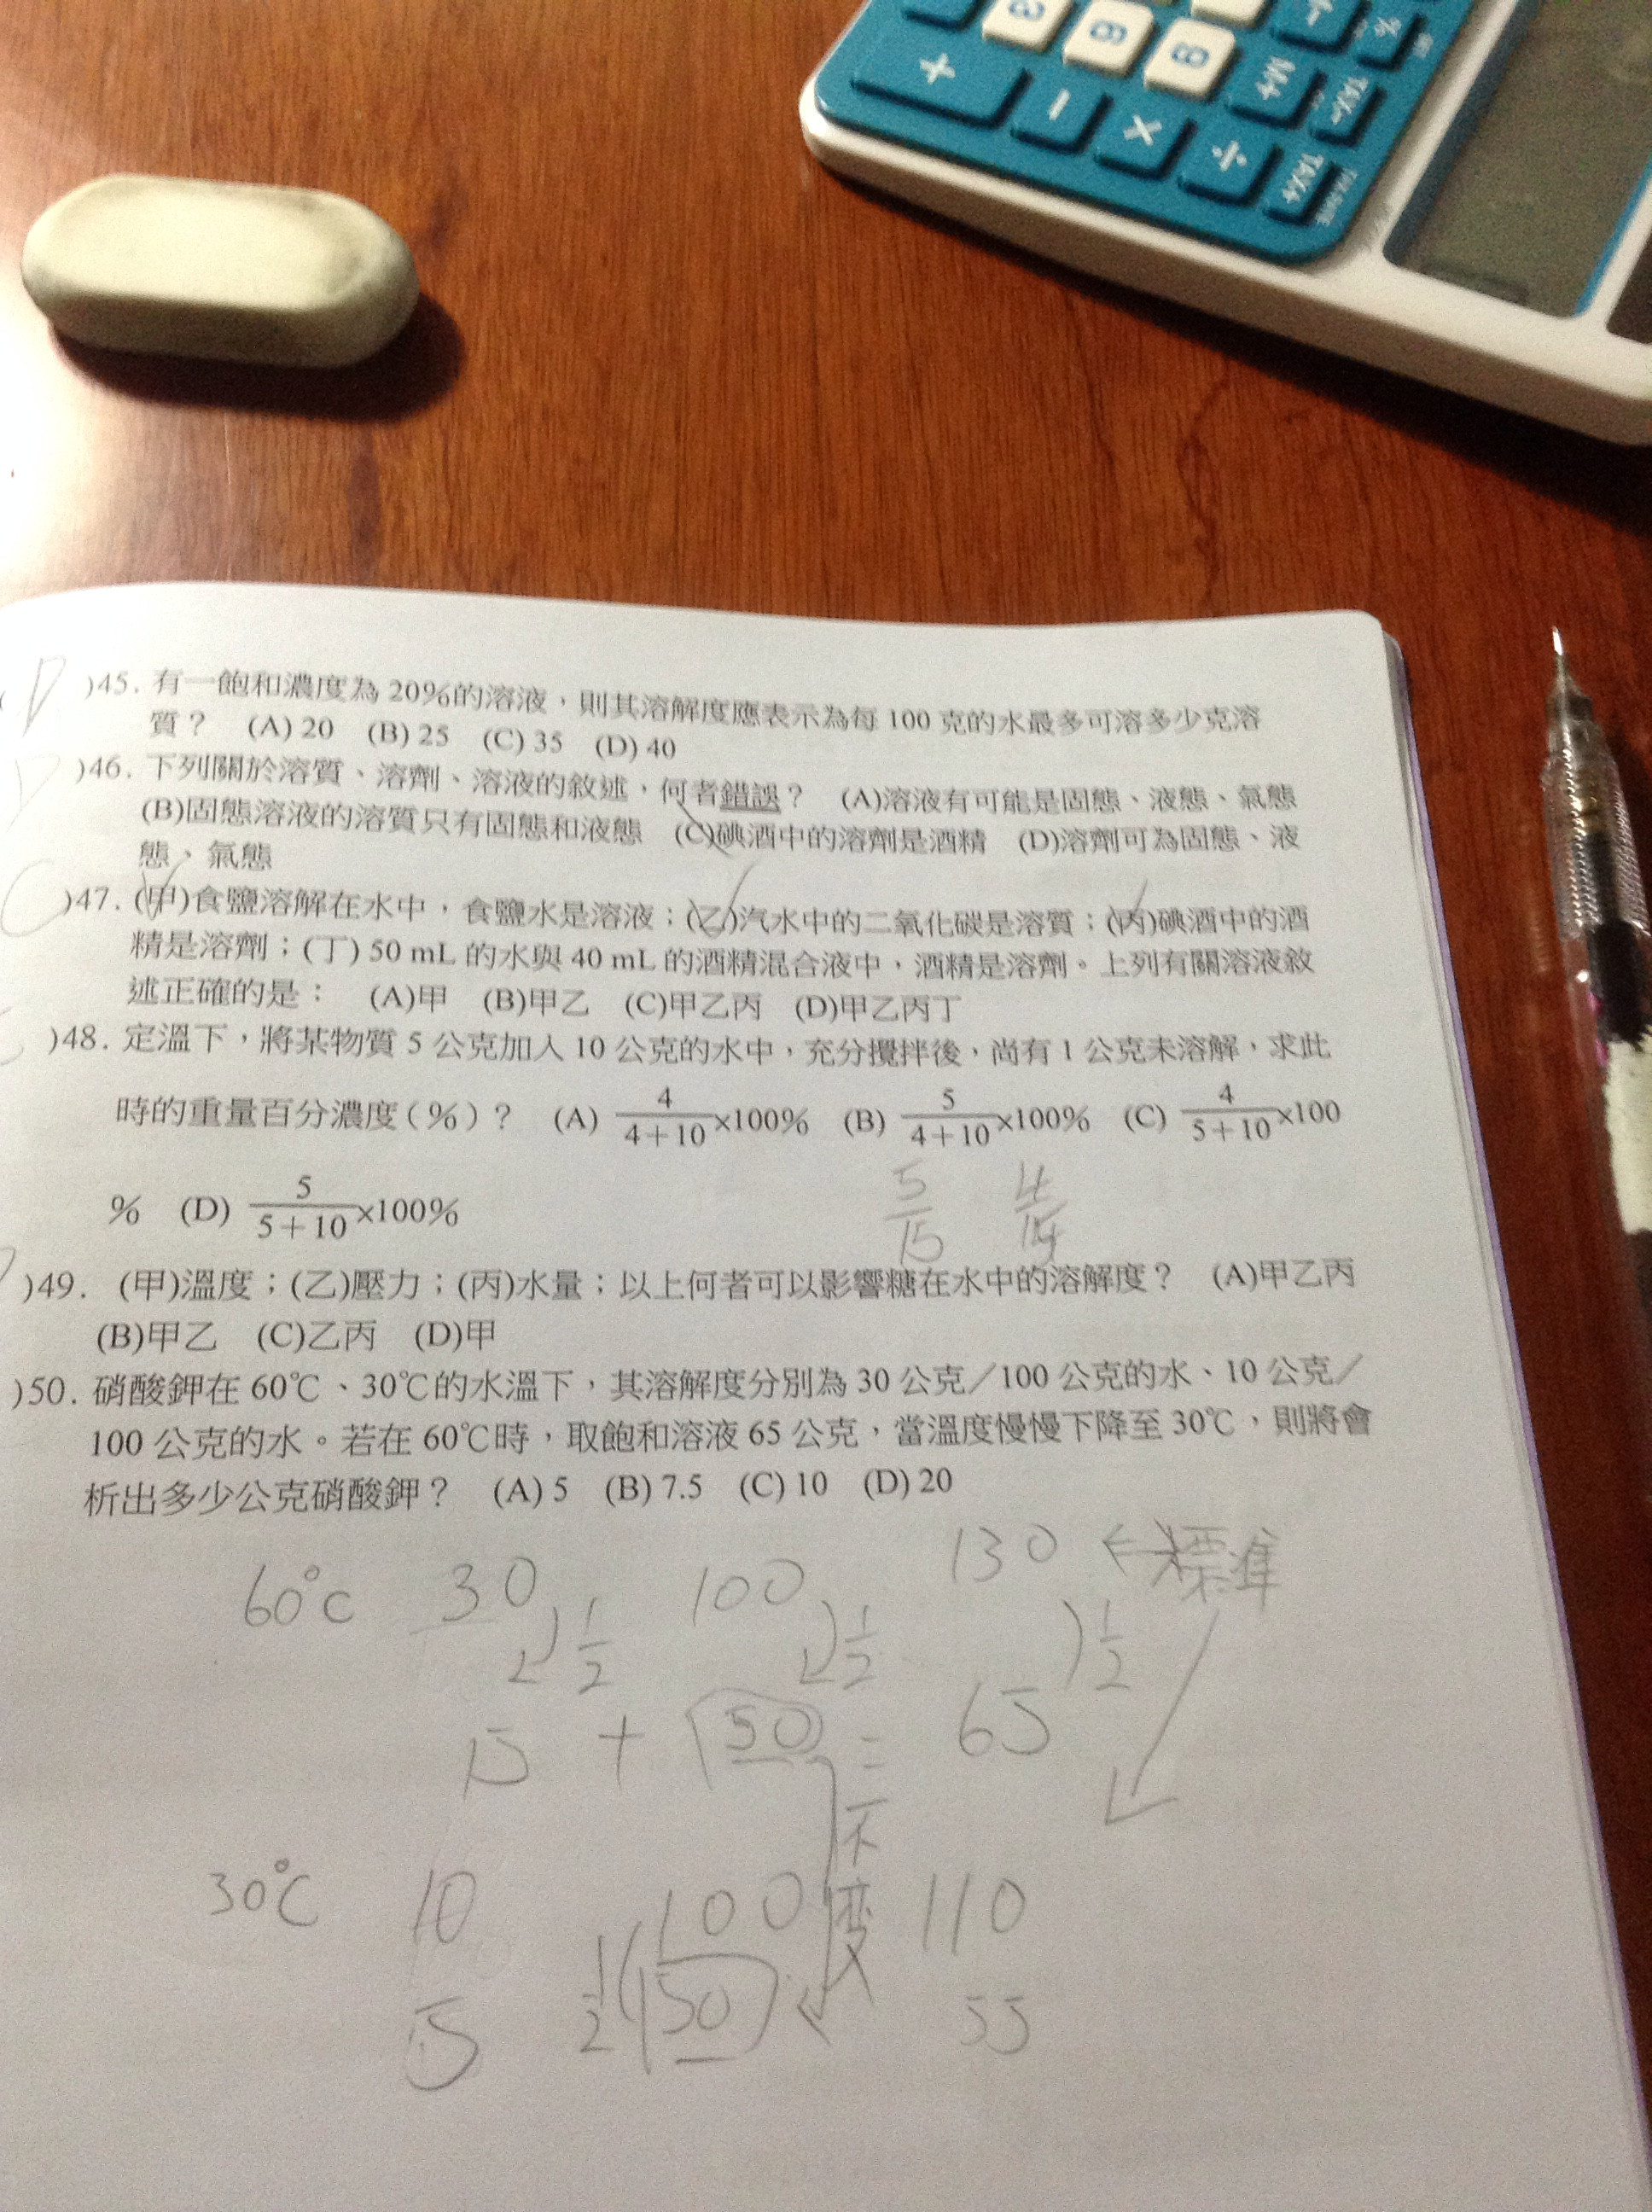 + - × ÷
M+ TAX- TAX+ %
)45. 有一飽和濃度為 20%的溶液，則其溶解度應表示為每 100 克的水最多可溶多少克溶
質？ (A) 20 (B) 25 (C) 35 (D) 40
)46. 下列關於溶質、溶劑、溶液的敘述，何者錯誤？ (A)溶液有可能是固態、液態、氣態
(B)固態溶液的溶質只有固態和液態 (C)碘酒中的溶劑是酒精 (D)溶劑可為固態、液
態、氣態
C )47. (甲)食鹽溶解在水中，食鹽水是溶液；(乙)汽水中的二氧化碳是溶質；(丙)碘酒中的酒
精是溶劑；(丁) 50 mL 的水與 40 mL 的酒精混合液中，酒精是溶劑。上列有關溶液敘
述正確的是： (A)甲 (B)甲乙 (C)甲乙丙 (D)甲乙丙丁
)48. 定溫下，將某物質 5 公克加入 10 公克的水中，充分攪拌後，尚有 1 公克未溶解，求此
時的重量百分濃度（%）？ (A) 4/(4+10)×100% (B) 5/(4+10)×100% (C) 4/(5+10)×100
% (D) 5/(5+10)×100%
5/15 4/14
)49. (甲)溫度；(乙)壓力；(丙)水量；以上何者可以影響糖在水中的溶解度？ (A)甲乙丙
(B)甲乙 (C)乙丙 (D)甲
)50. 硝酸鉀在 60℃、30℃的水溫下，其溶解度分別為 30 公克／100 公克的水、10 公克／
100 公克的水。若在 60℃時，取飽和溶液 65 公克，當溫度慢慢下降至 30℃，則將會
析出多少公克硝酸鉀？ (A) 5 (B) 7.5 (C) 10 (D) 20
60℃ 30 100 130 ← 標準
1/2 1/2 1/2
15 + 50 = 65
不变
30℃ 10 100 110
5 1/2 50 55